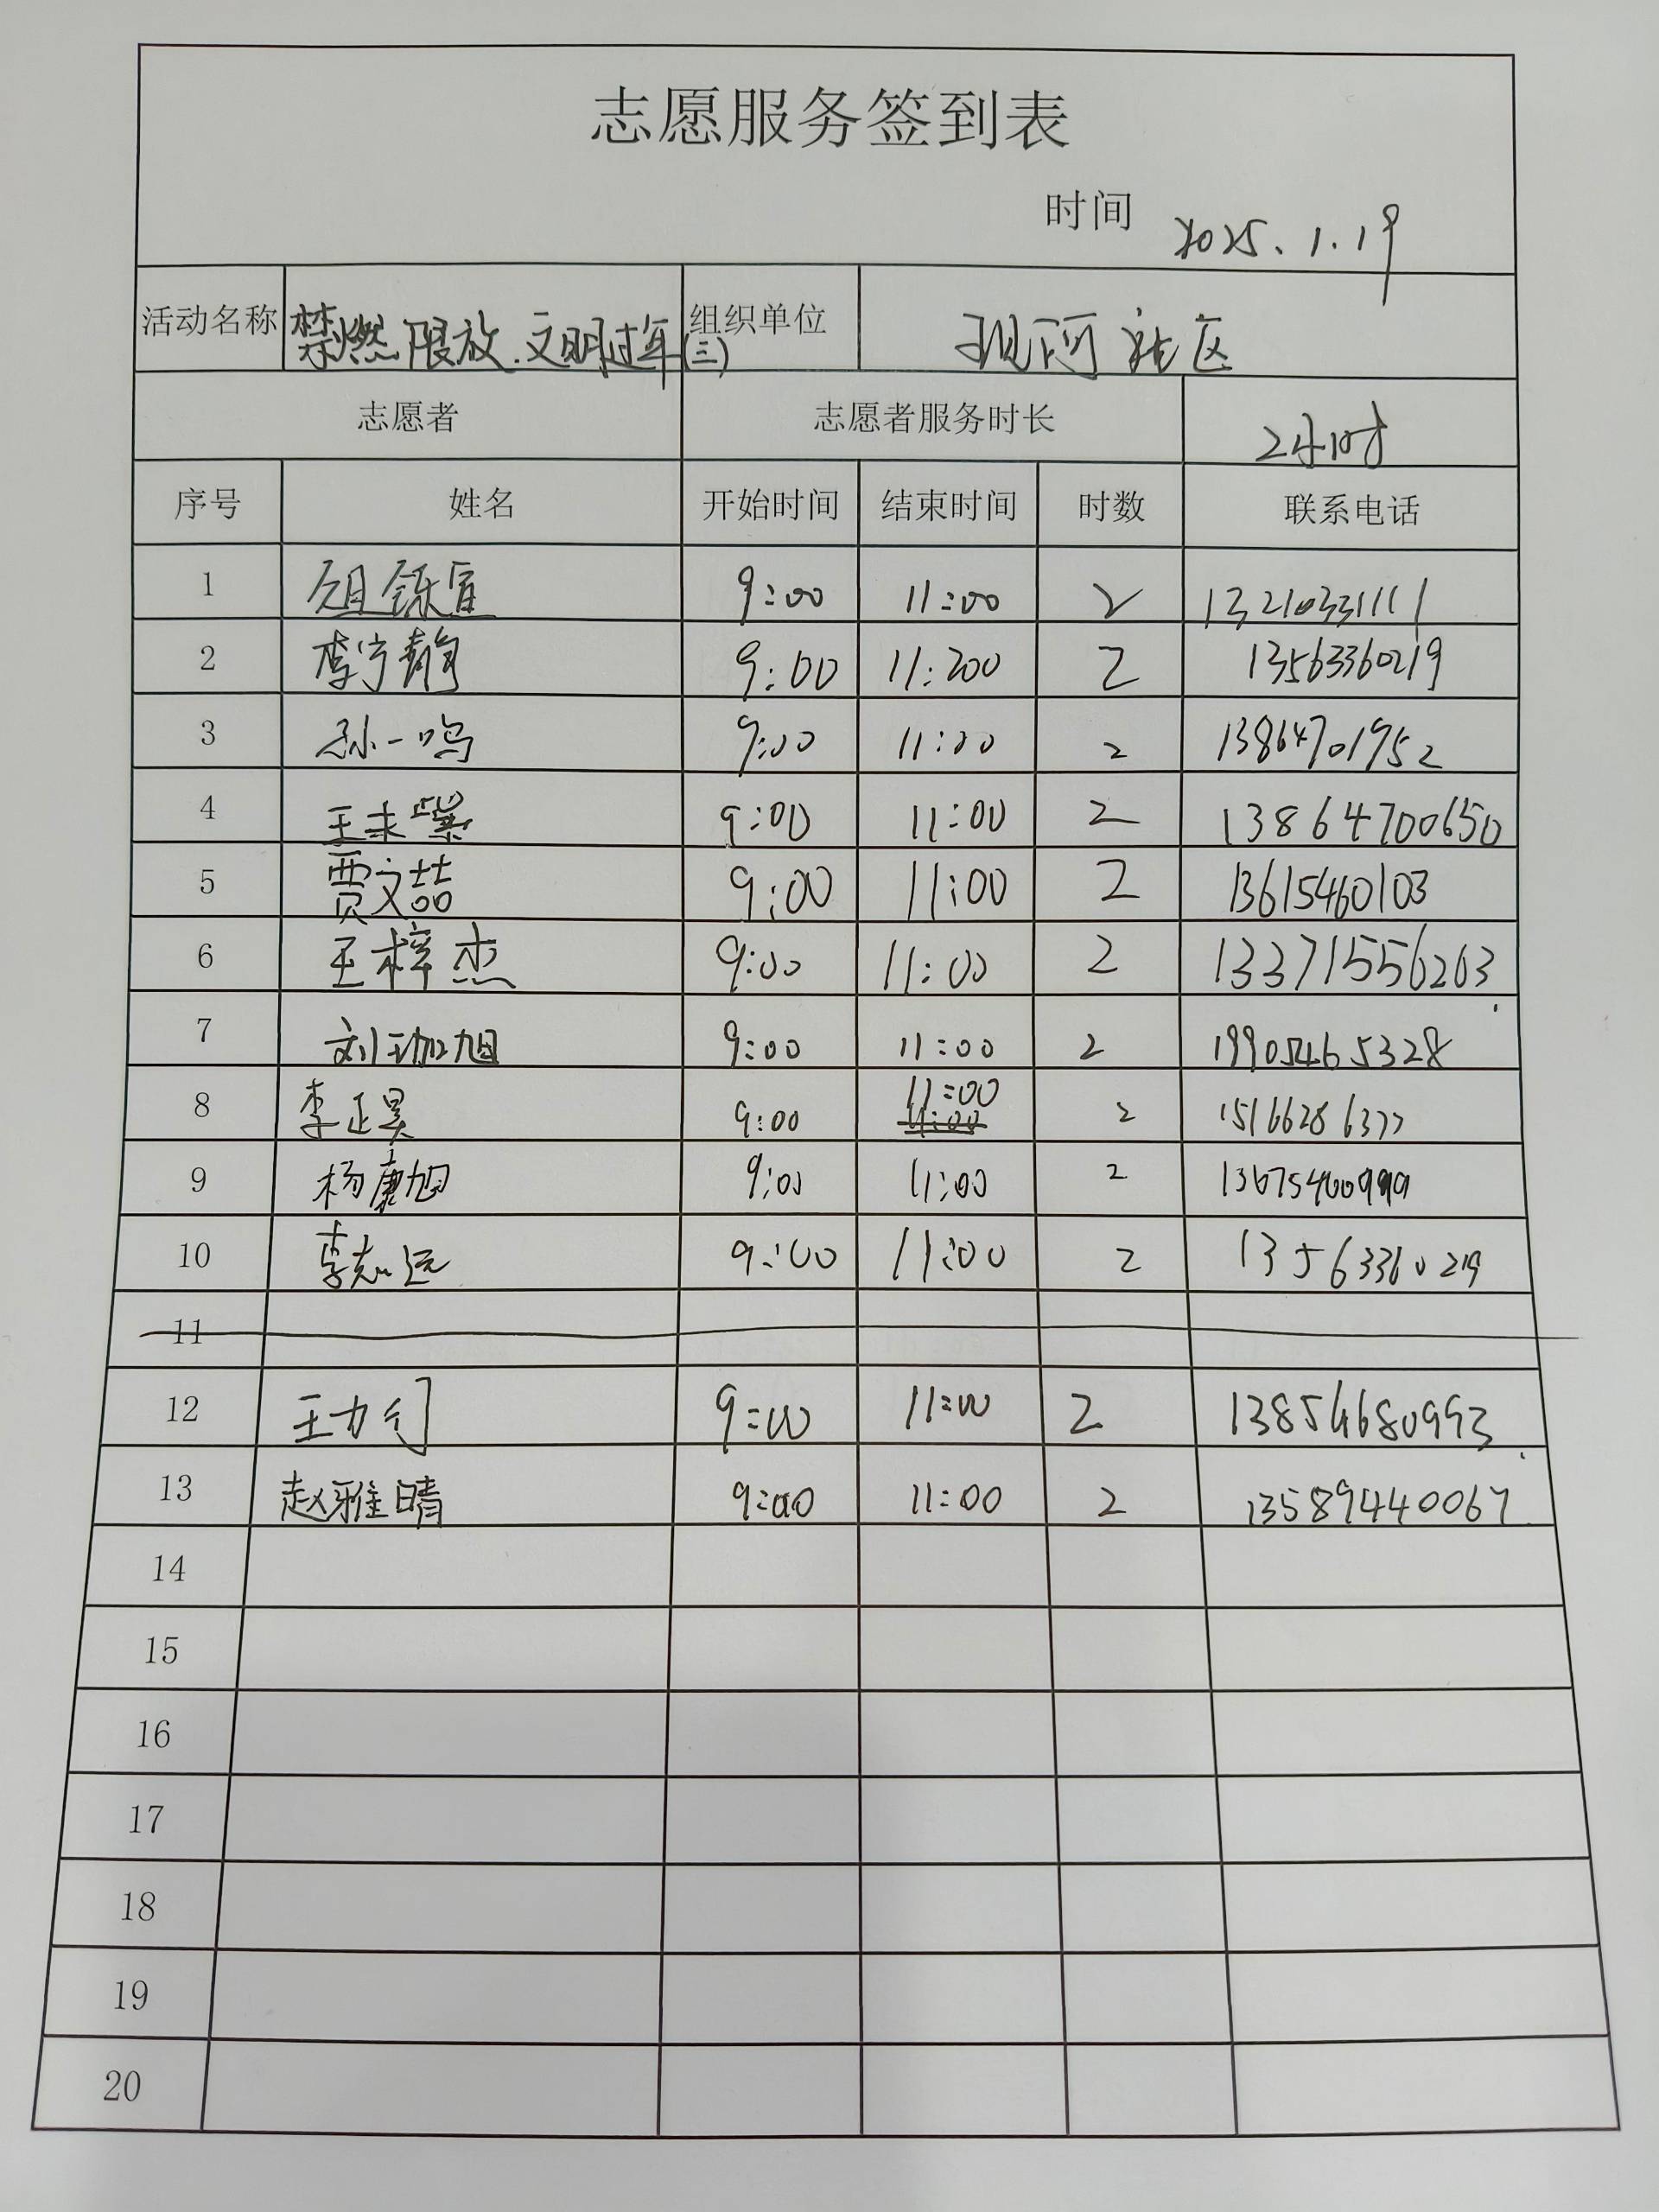 志愿服务签到表
时间 2025.1.19
活动名称 禁燃限放.文明过年(三) 组织单位 现河社区
志愿者 志愿者服务时长 2小时
序号 姓名 开始时间 结束时间 时数 联系电话
1 9:00 11:00 2 13210331111
2 李宁静 9:00 11:200 2 13563360219
3 孙一鸣 9:00 11:00 2 13864701952
4 王未 9:00 11:00 2 13864700650
5 贾文喆 9:00 11:00 2 13615460103
6 王梓杰 9:00 11:00 2 13371556263
7 刘珈旭 9:00 11:00 2 19905465328
8 李正昊 9:00 11:00 2 15166286377
9 杨康旭 9:00 11:00 2 13675460999
10 李志远 9:00 11:00 2 13563360219
11
12 王力行 9:00 11:00 2 13854680993
13 赵雅晴 9:00 11:00 2 13589440067
14
15
16
17
18
19
20